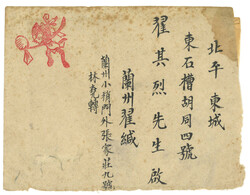 北平東城
東石槽胡同四號
翟其烈先生啟
蘭州翟緘
蘭州小稍門外張家莊九號
林克轉